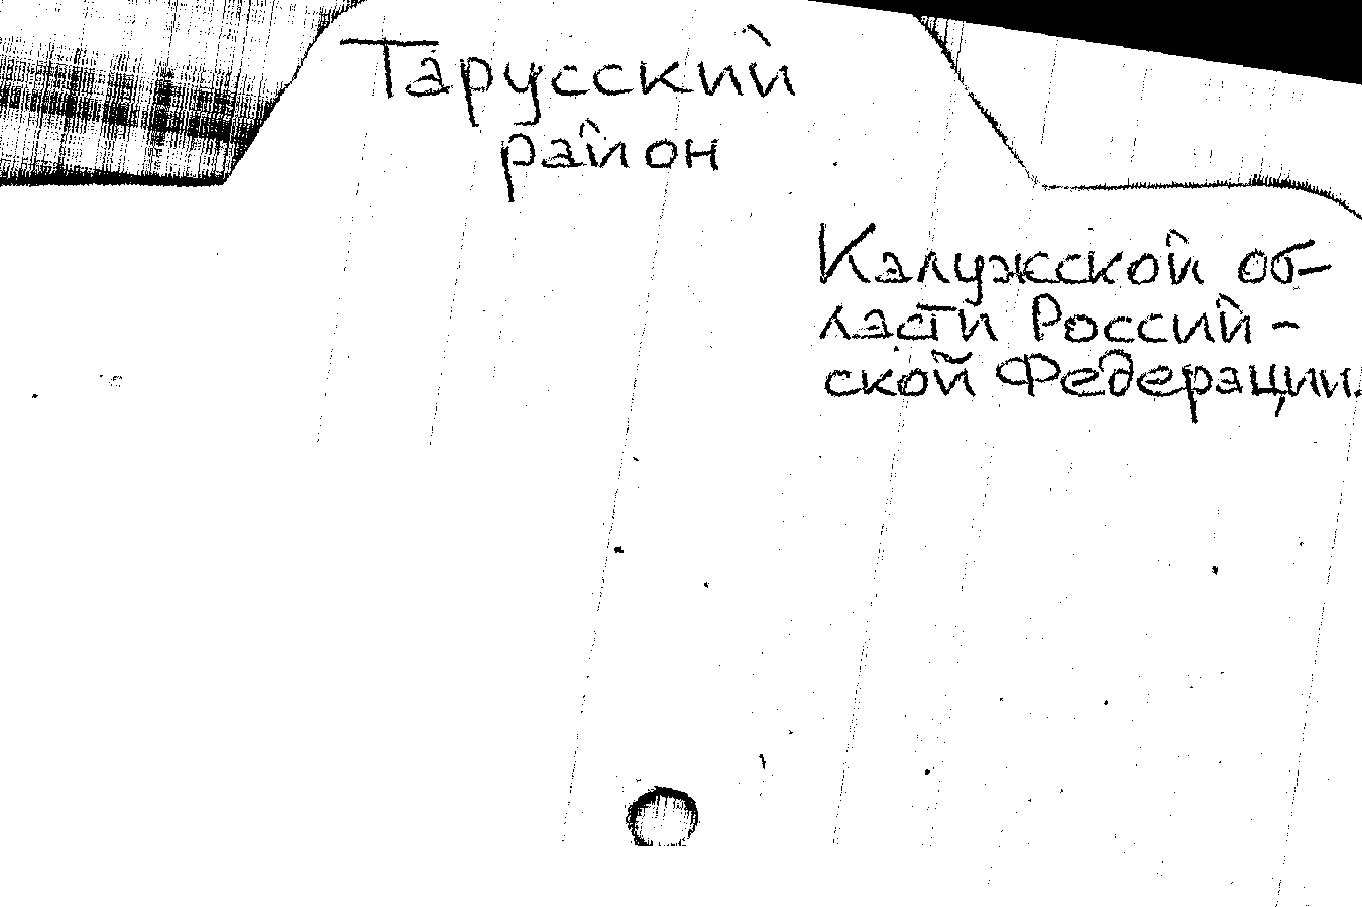 Тарусский
район
Калужской об-
ласти Россий-
ской Федерации.